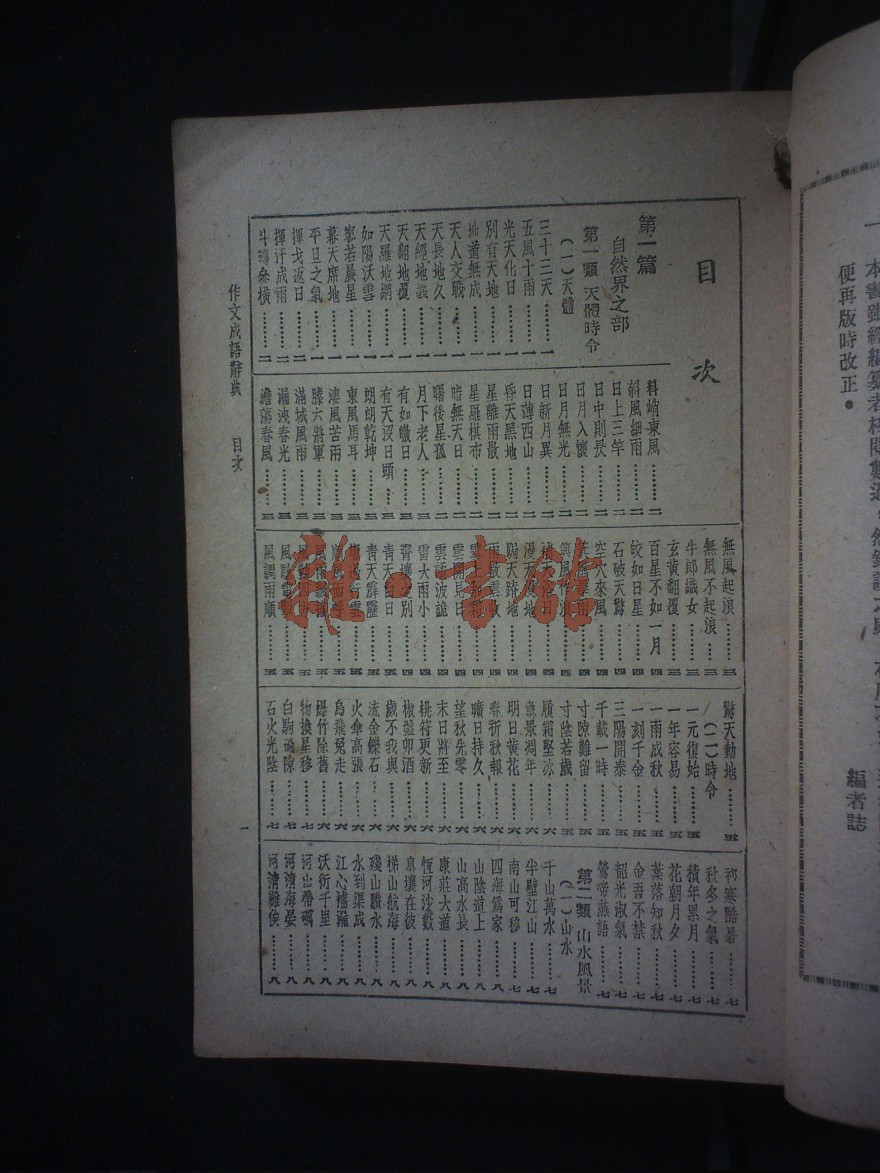 一　本書雖經編纂者校閱數過
便再版時改正。
編者誌
目次
第一篇
自然界之部
第一類 天體時令
(一)天體
三十三天………一
五風十雨………一
光天化日………一
別有天地………一
地道無成………一
天人交戰………一
天長地久………一
天經地義………一
天翻地覆………一
天羅地網………一
如陽沃雪………一
寥若晨星………一
幕天席地………一
平旦之氣………一
揮戈返日………二
揮汗成雨………二
斗轉參橫………二
料峭東風………二
斜風細雨………二
日上三竿………二
日中則昃………二
日月入懷………二
日月無光………二
日新月異………二
日薄西山………二
昏天黑地………二
星離雨散………二
星羅棋布………二
曙後星孤………二
暗無天日………二
月下老人………三
有如皦日………三
有天沒日頭………三
朗朗乾坤………三
東風馬耳………三
淒風苦雨………三
滕六將軍………三
滿城風雨………三
漏洩春光………三
澹蕩春風………三
無風起浪………三
無風不起浪………三
牛郎織女………三
玄黃翻覆………三
百星不如一月………四
皎如日星………四
石破天驚………四
空穴來風………四
跼天蹐地………四
雲開見日………四
雲譎波詭………四
雷大雨小………四
霄壤之別………四
青天白日………五
青天霹靂………五
風調雨順………五
驚天動地………五
(二)時令
一元復始………五
一年容易………五
一雨成秋………五
一刻千金………五
三陽開泰………五
千載一時………五
寸隙難留………五
寸陰若歲………五
履霜堅冰………六
急景凋年………六
明日黃花………六
春祈秋報………六
曠日持久………六
望秋先零………六
末日將至………六
桃符更新………六
椒盤卯酒………六
歲不我與………六
流金鑠石………六
火傘高張………六
烏飛兔走………六
爆竹除舊………六
物換星移………七
白駒過隙………七
石火光陰………七
祁寒酷暑………七
秋冬之氣………七
積年累月………七
花朝月夕………七
葉落知秋………七
金吾不禁………七
韶光淑氣………七
鶯啼燕語………七
第二類 山水風景
(一)山水
千山萬水………七
半壁江山………七
南山可移………七
四海爲家………八
山陰道上………八
山高水長………八
康莊大道………八
恆河沙數………八
息壤在彼………八
梯山航海………八
殘山賸水………八
水到渠成………八
江心補漏………八
沃衍千里………八
河出帶礪………八
河清海晏………八
河清難俟………八
作文成語辭典　目次
一
雜·書館